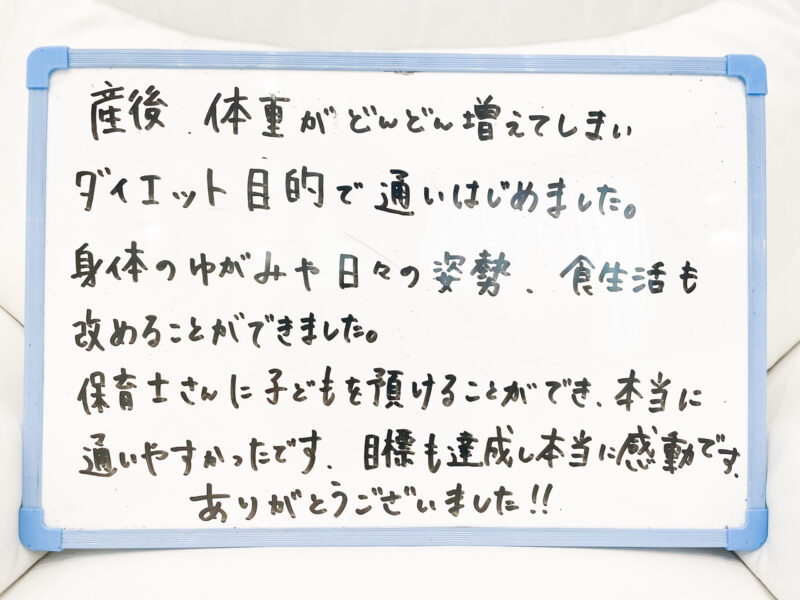 産後、体重がどんどん増えてしまい
ダイエット目的で通いはじめました。
身体のゆがみや日々の姿勢、食生活も
改めることができました。
保育士さんに子どもを預けることができ、本当に
通いやすかったです、目標も達成し本当に感動です、
ありがとうございました!!